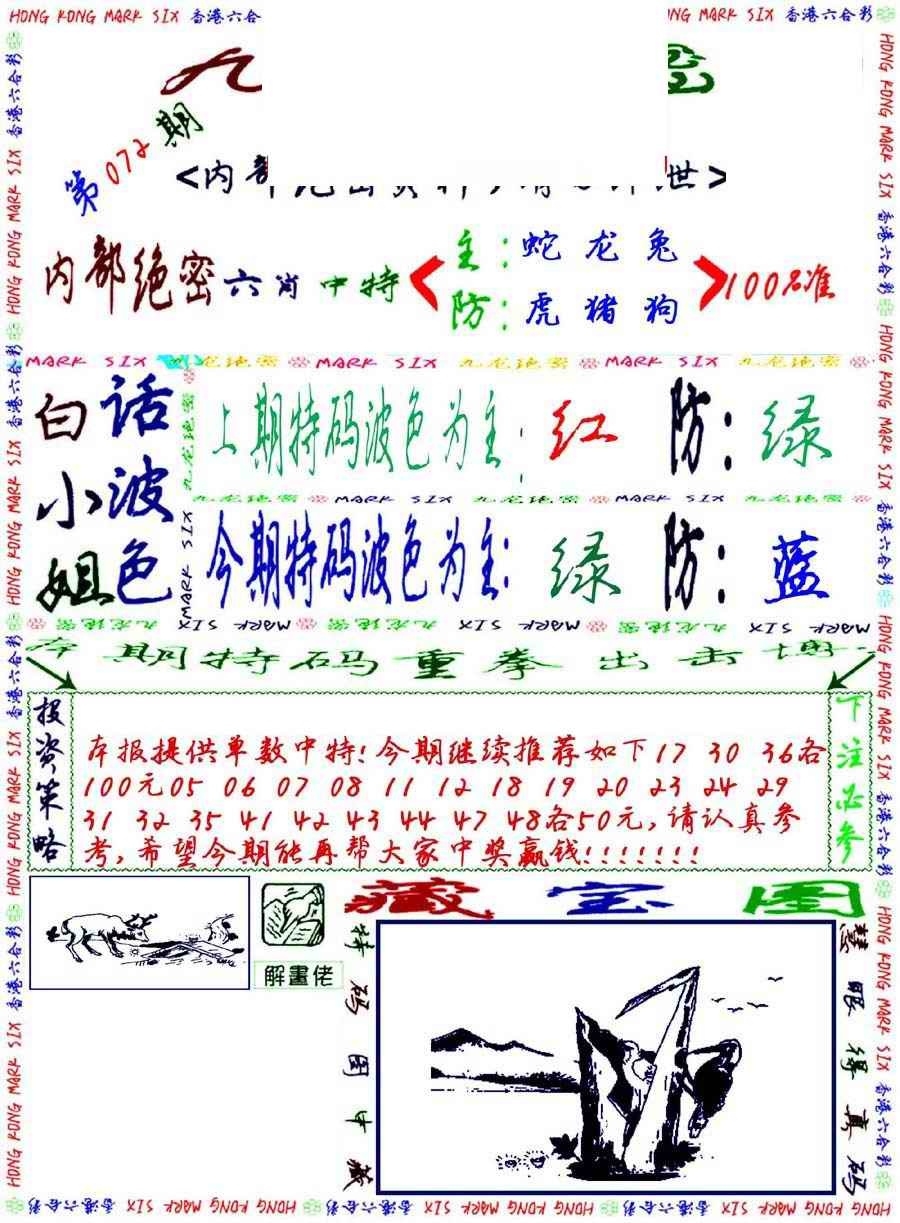 HONG KONG MARK SIX 香港六合彩
第072期
<内部
世>
内部绝密六肖中特
主:蛇 龙 兔
防:虎 猪 狗
100%准
MARK SIX 九龙绝密 MARK SIX 九龙绝密 MARK SIX 九龙绝密
白小姐
话波色
上期特码波色为主: 红 防: 绿
九龙绝密 MARK SIX 九龙绝密 MARK SIX 九龙绝密
今期特码波色为主: 绿 防: 蓝
本期特码重拳出击
投资策略
本报提供单数中特!今期继续推荐如下17 30 36各
100元05 06 07 08 11 12 18 19 20 23 24 29
31 32 35 41 42 43 44 47 48各50元,请认真参
考,希望今期能再帮大家中奖赢钱!!!!!!!
下注必参
解畫佬
藏宝图
特码图中藏
慧眼得真码